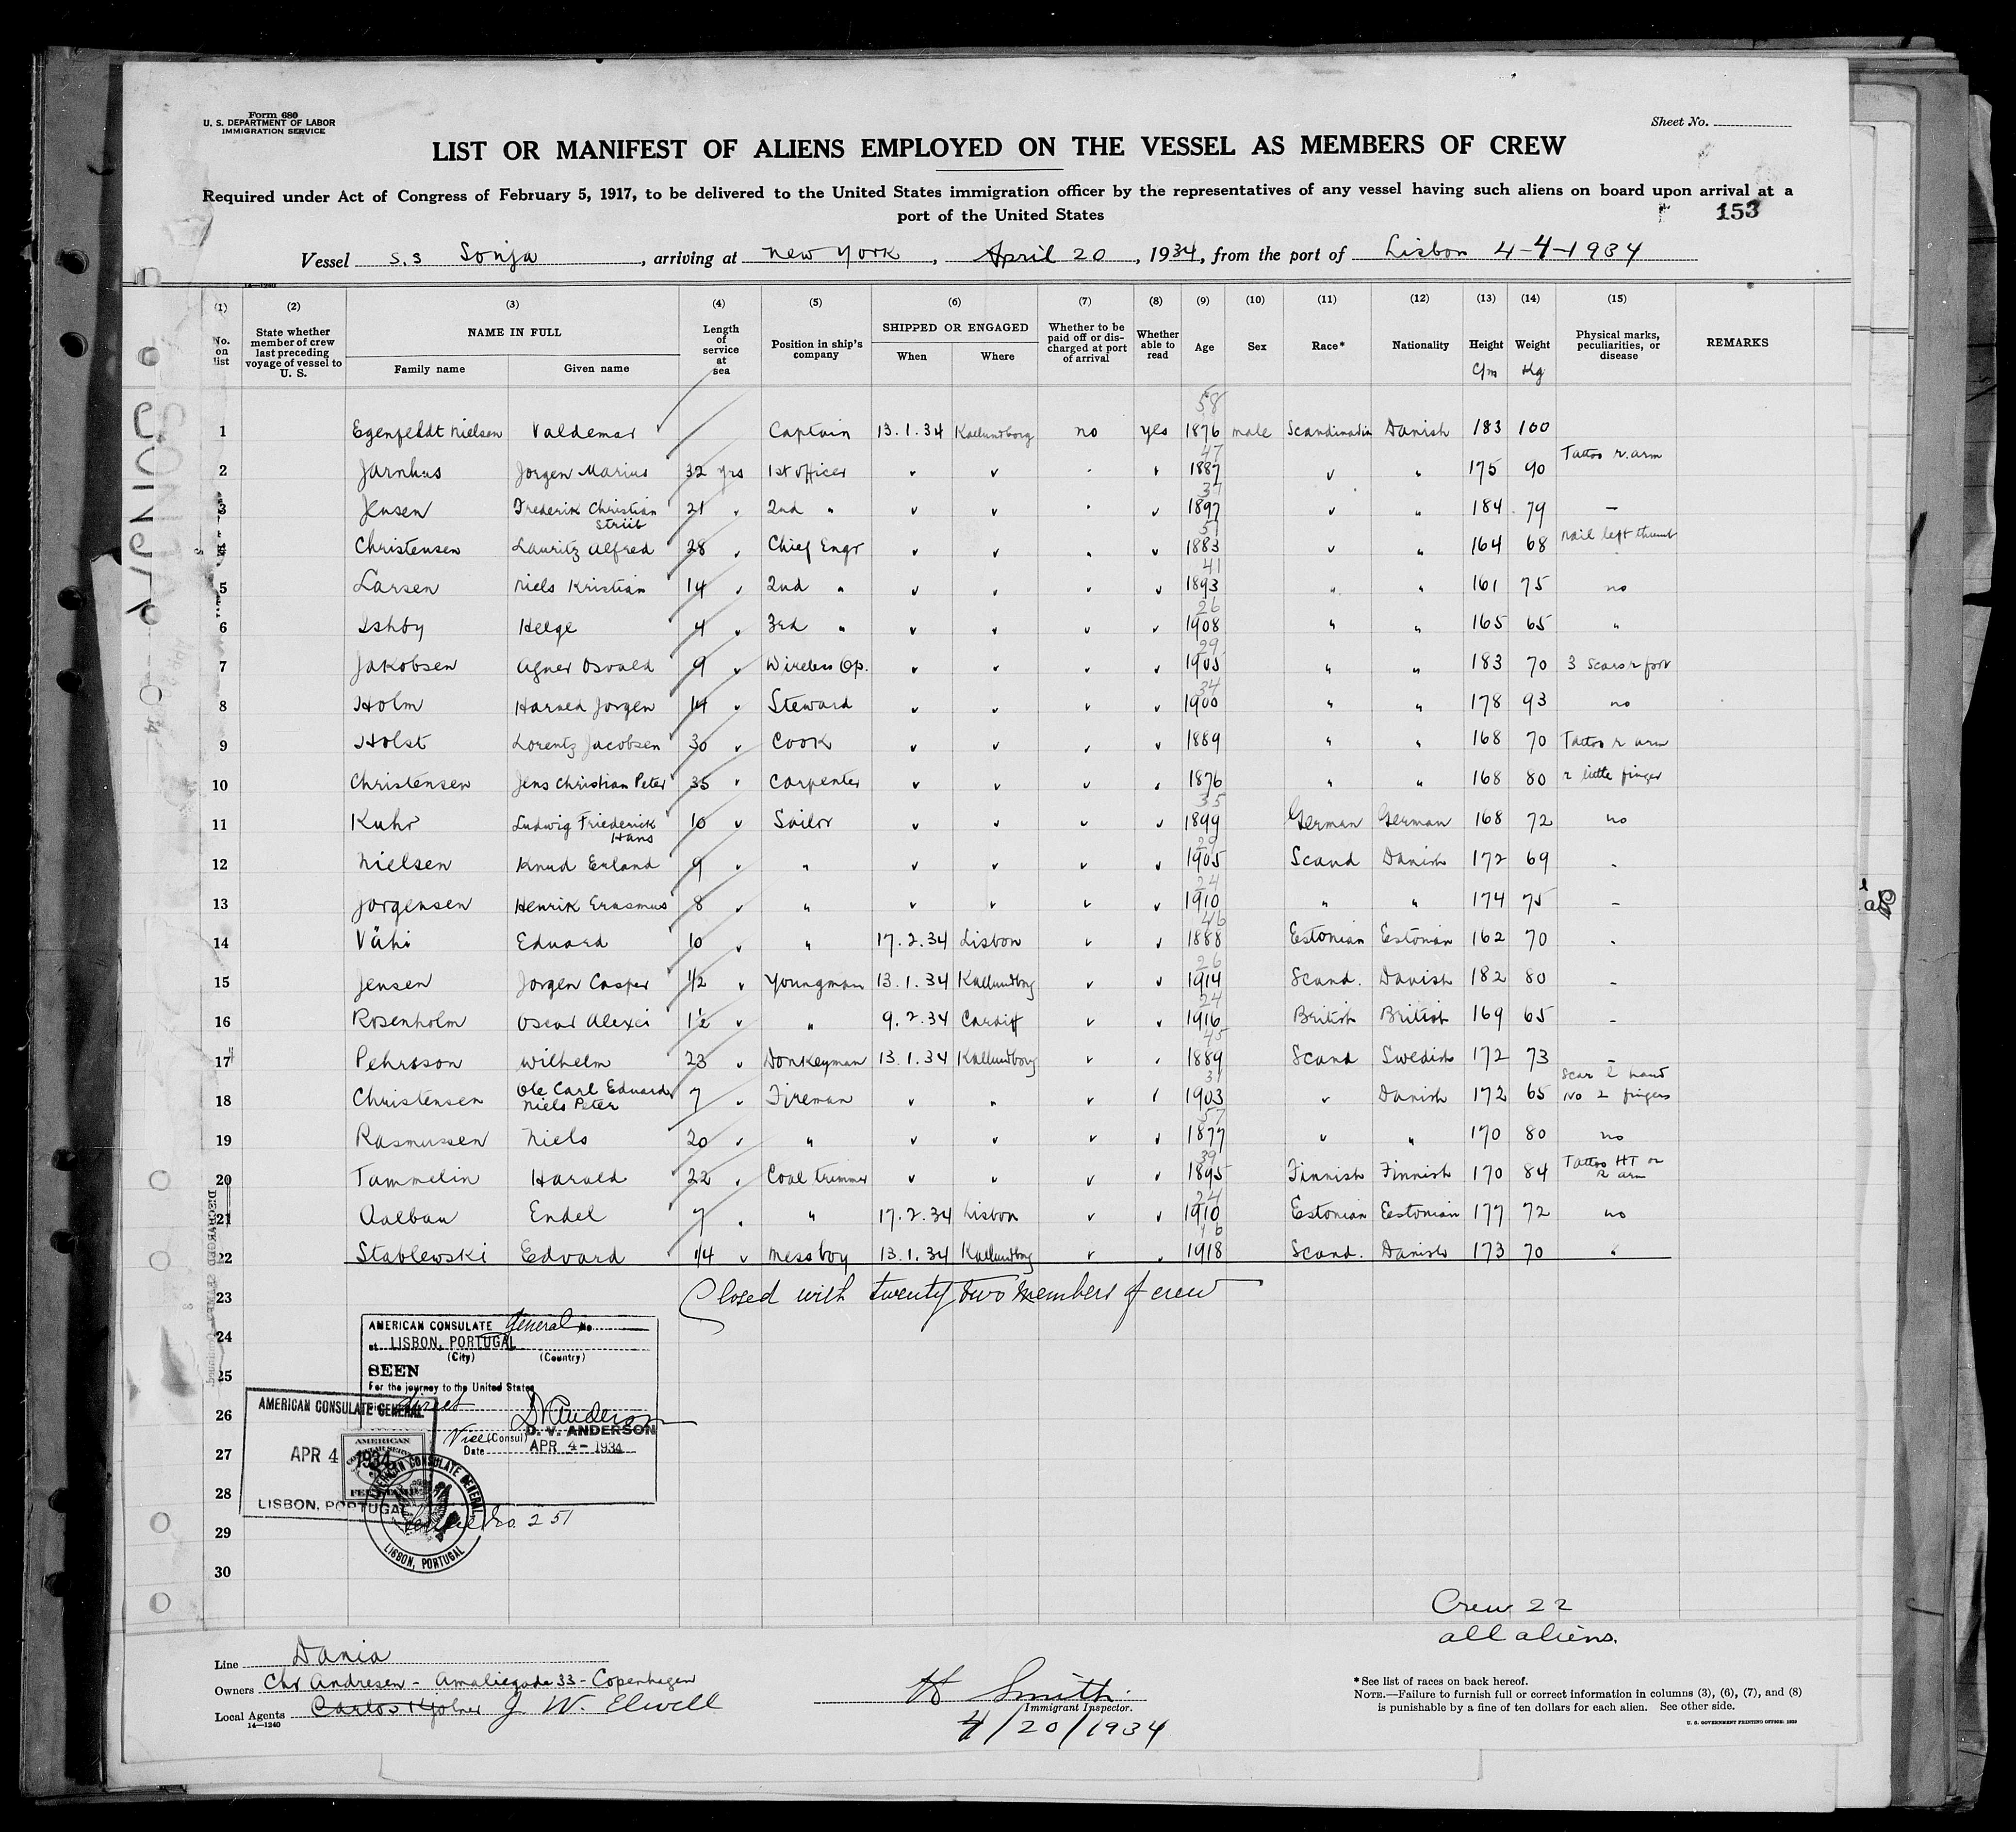 Form 680
U. S. DEPARTMENT OF LABOR
IMMIGRATION SERVICE
Sheet No.
LIST OR MANIFEST OF ALIENS EMPLOYED ON THE VESSEL AS MEMBERS OF CREW
Required under Act of Congress of February 5, 1917, to be delivered to the United States immigration officer by the representatives of any vessel having such aliens on board upon arrival at a
port of the United States
153
Vessel S.S Sonja, arriving at New York, April 20, 1934, from the port of Lisbon 4-4-1934
14—1240
(1) (2) (3) (4) (5) (6) (7) (8) (9) (10) (11) (12) (13) (14) (15)
No. on list
State whether member of crew last preceding voyage of vessel to U. S.
NAME IN FULL
Family name Given name
Length of service at sea
Position in ship's company
SHIPPED OR ENGAGED
When Where
Whether to be paid off or discharged at port of arrival
Whether able to read
Age Sex Race* Nationality Height Weight
C/m Kg
Physical marks, peculiarities, or disease
REMARKS
58
1 Egenfeldt Nielsen Valdemar Captain 13.1.34 Kallundborg no yes 1876 male Scandinavian Danish 183 100
47
2 Jarnhus Jorgen Marius 32 yrs 1st officer " " " " 1887 " " 175 90 Tattoo r. arm
37
3 Jensen Frederik Christian Strüb 21 " 2nd " " " " " 1897 " " 184 79 —
51
4 Christensen Lauritz Alfred 28 " Chief Engr " " " " 1883 " " 164 68 nail left thumb
41
5 Larsen Niels Kristian 14 " 2nd " " " " " 1893 " " 161 75 no
26
6 Ishöy Helge 4 " 3rd " " " " " 1908 " " 165 65 "
29
7 Jakobsen Agner Osvald 9 " Wireless Op. " " " " 1905 " " 183 70 3 scars r foot
34
8 Holm Harald Jorgen 14 " Steward " " " " 1900 " " 178 93 no
9 Holst Lorentz Jacobsen 30 " Cook " " " " 1889 " " 168 70 Tattoo r arm
10 Christensen Jens Christian Peter 35 " Carpenter " " " " 1876 " " 168 80 r little finger
35
11 Kuhr Ludwig Friederick Hans 10 " Sailor " " " " 1899 German German 168 72 no
29
12 Nielsen Knud Erland 9 " " " " " " 1905 Scand Danish 172 69 -
24
13 Jorgensen Henrik Erasmus 8 " " " " " " 1910 " " 174 75 -
46
14 Vähi Eduard 10 " " 17.2.34 Lisbon " " 1888 Estonian Estonian 162 70 -
26
15 Jensen Jorgen Casper 1/2 " Youngman 13.1.34 Kallundborg " " 1914 Scand. Danish 182 80 -
24
16 Rosenholm Oscar Alexei 1½ " " 9.2.34 Cardiff " " 1916 British British 169 65 -
45
17 Pehrsson Wilhelm 23 " Donkeyman 13.1.34 Kallundborg " " 1889 Scand Swedish 172 73 -
31
18 Christensen Ole Carl Eduard Niels Peter 7 " Fireman " " " " 1903 " Danish 172 65 Scar l hand No 2 fingers
57
19 Rasmussen Niels 20 " " " " " " 1877 " " 170 80 no
39
20 Tammelin Harald 22 " Coal trimmer " " " " 1895 Finnish Finnish 170 84 Tattoo HT on R arm
24
21 Aalbau Endel 7 " " 17.2.34 Lisbon " " 1910 Estonian Estonian 177 72 no
16
22 Stablewski Edvard 1/4 " Messboy 13.1.34 Kallundborg " " 1918 Scand. Danish 173 70 "
23 Closed with twenty two members of crew
24
25
26
27
28
29
30
AMERICAN CONSULATE General No.
at LISBON, PORTUGAL
(City) (Country)
SEEN
For the journey to the United States
direct
Vice (Consul) D. V. ANDERSON
Date APR 4 - 1934
AMERICAN CONSULATE GENERAL
APR 4 1934
LISBON, PORTUGAL
AMERICAN CONSULATE GENERAL
LISBON, PORTUGAL
No. 251
SONJA
Crew 22
all aliens.
Line Dania
Owners Chr Andresen - Amaliegade 33 - Copenhagen
Local Agents J. W. Elwell
14—1240
H Smith
Immigrant Inspector.
4/20/1934
*See list of races on back hereof.
NOTE.—Failure to furnish full or correct information in columns (3), (6), (7), and (8)
is punishable by a fine of ten dollars for each alien. See other side.
U. S. GOVERNMENT PRINTING OFFICE: 1929